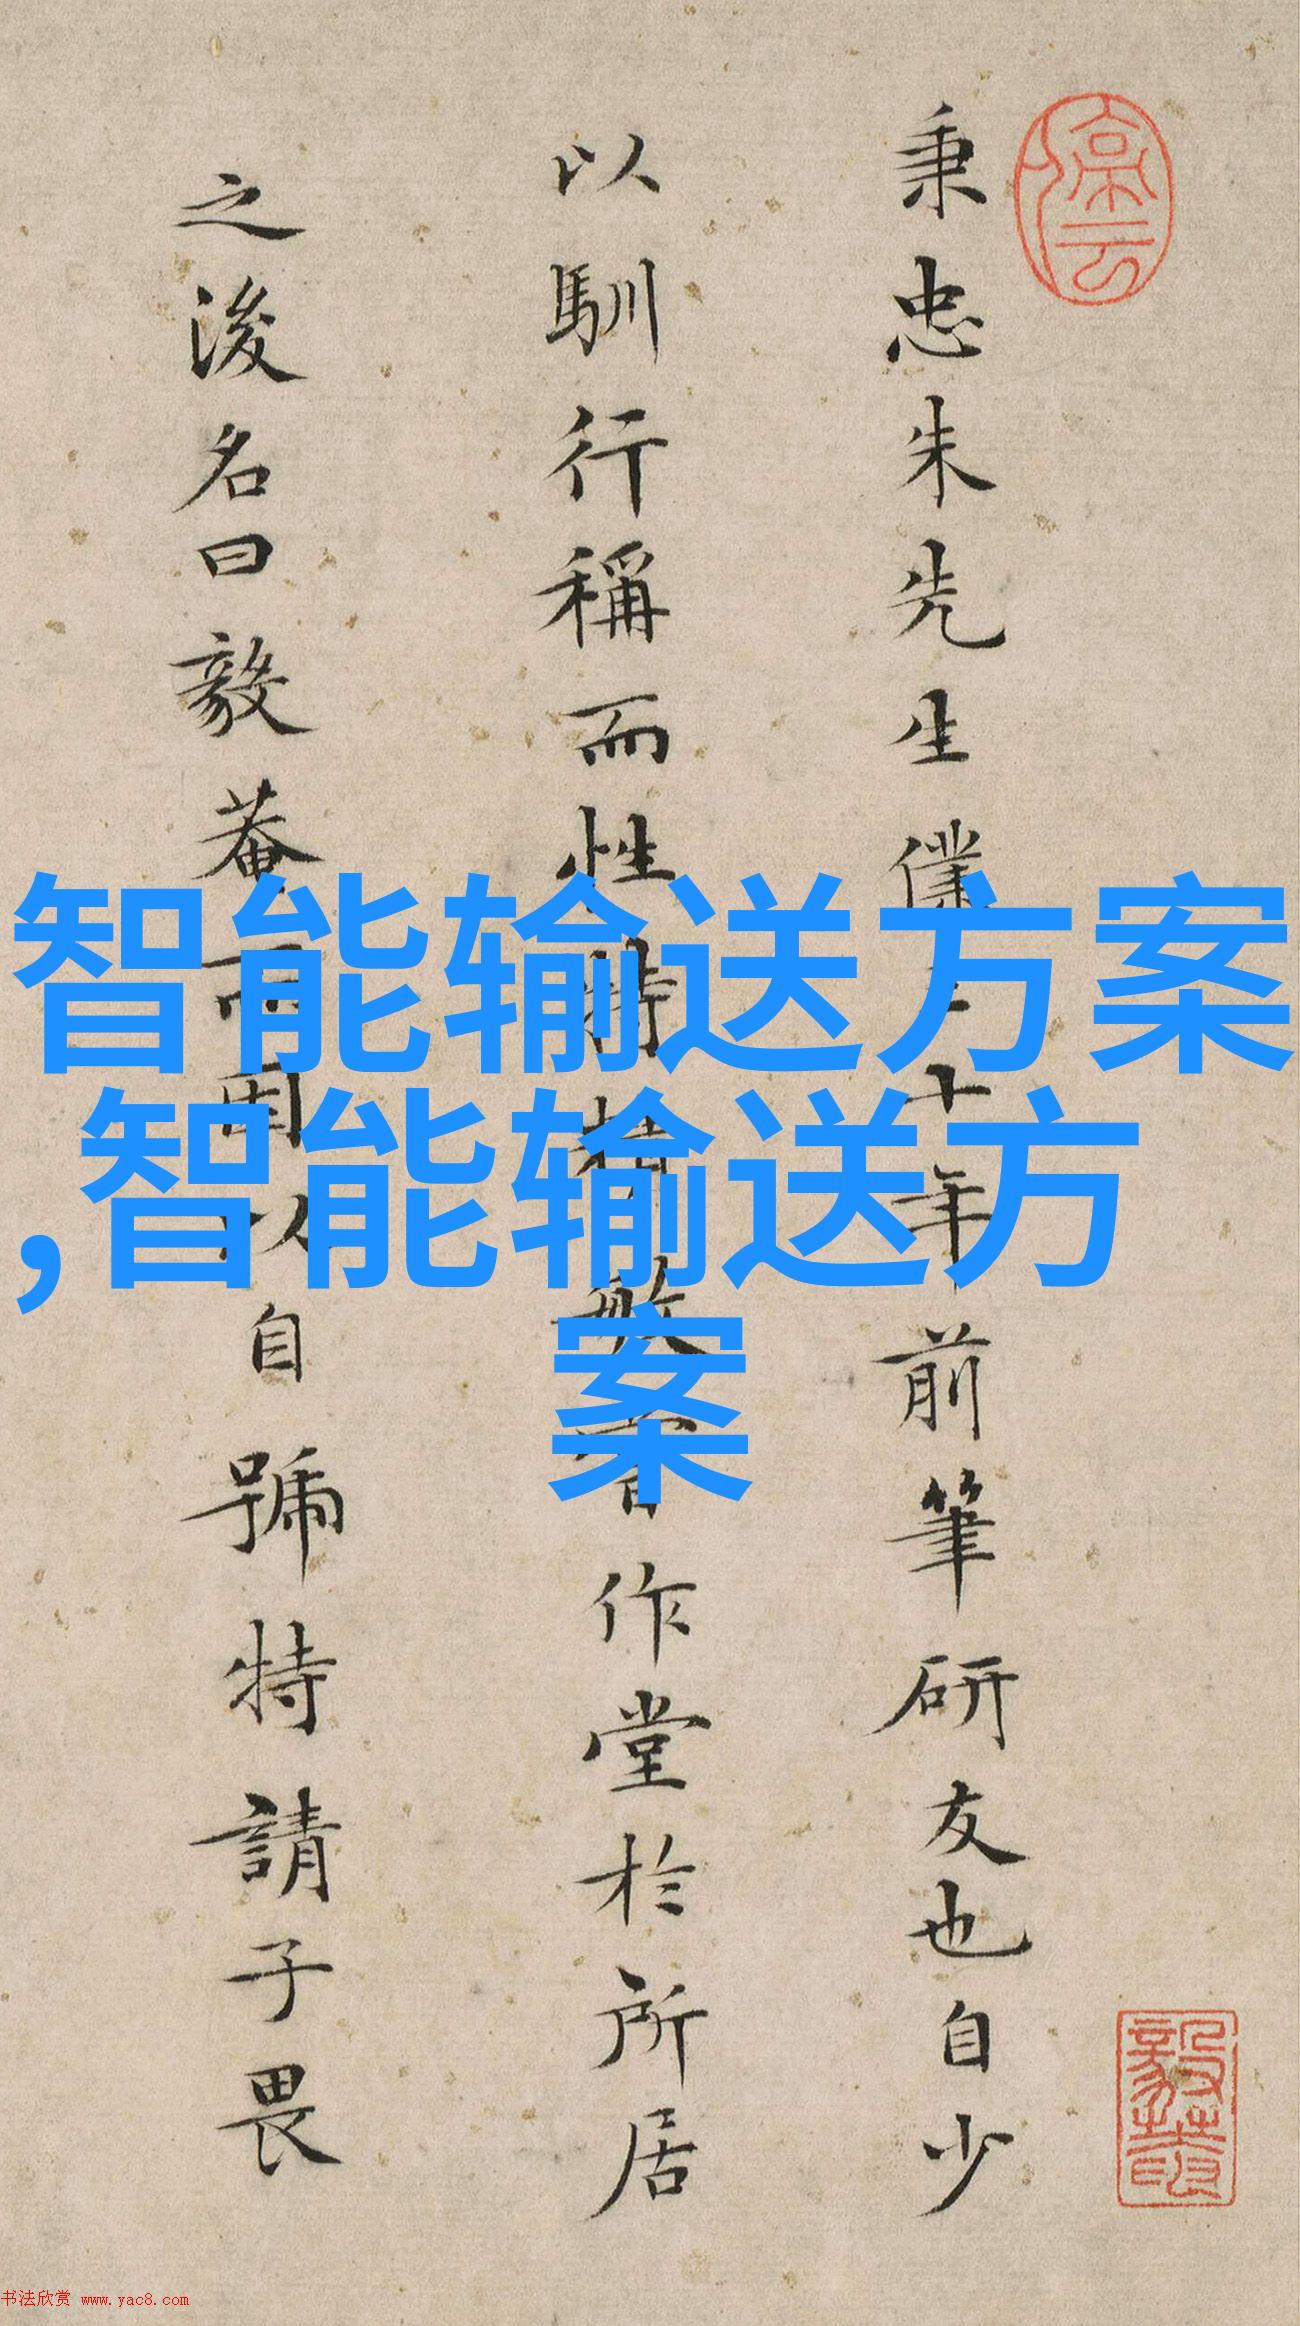 秉忠朱先生僕三十年前筆研友也自少
以馴行稱而性特精敏嘗作堂於所居
之後名曰毅菴而因以自號特請予畏
智能输送方案
,智能输送方
案
书法欣赏 www.yac8.com